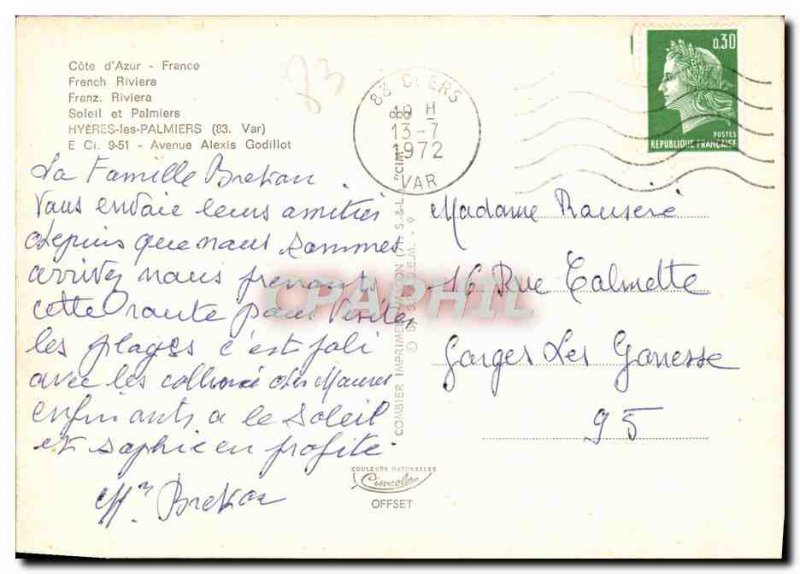 Côte d'Azur - France
French Riviera
Franz. Riviera
Soleil et Palmiers
HYÈRES-les-PALMIERS (83. Var)
E Ci. 9-51 - Avenue Alexis Godillot
83
83 CUERS
19 H
13-7
1972
VAR
0,30
POSTES
REPUBLIQUE FRANÇAISE
La Famille Brekan
Vous envoie leurs amitiés
depuis que nous sommes
arrivez nous prenons
cette route pour visitez
les plages c'est joli
avec les des Maures
enfin on a le soleil
et sophie en profite
Brekan
Madame Rouseré
16 Rue Calmette
Garges Les Gonesse
95
CPAPHIL
COMBIER IMPRIMEUR MACON (S.-&-L.) "CIM"
COULEURS NATURELLES
Cimcolor
OFFSET